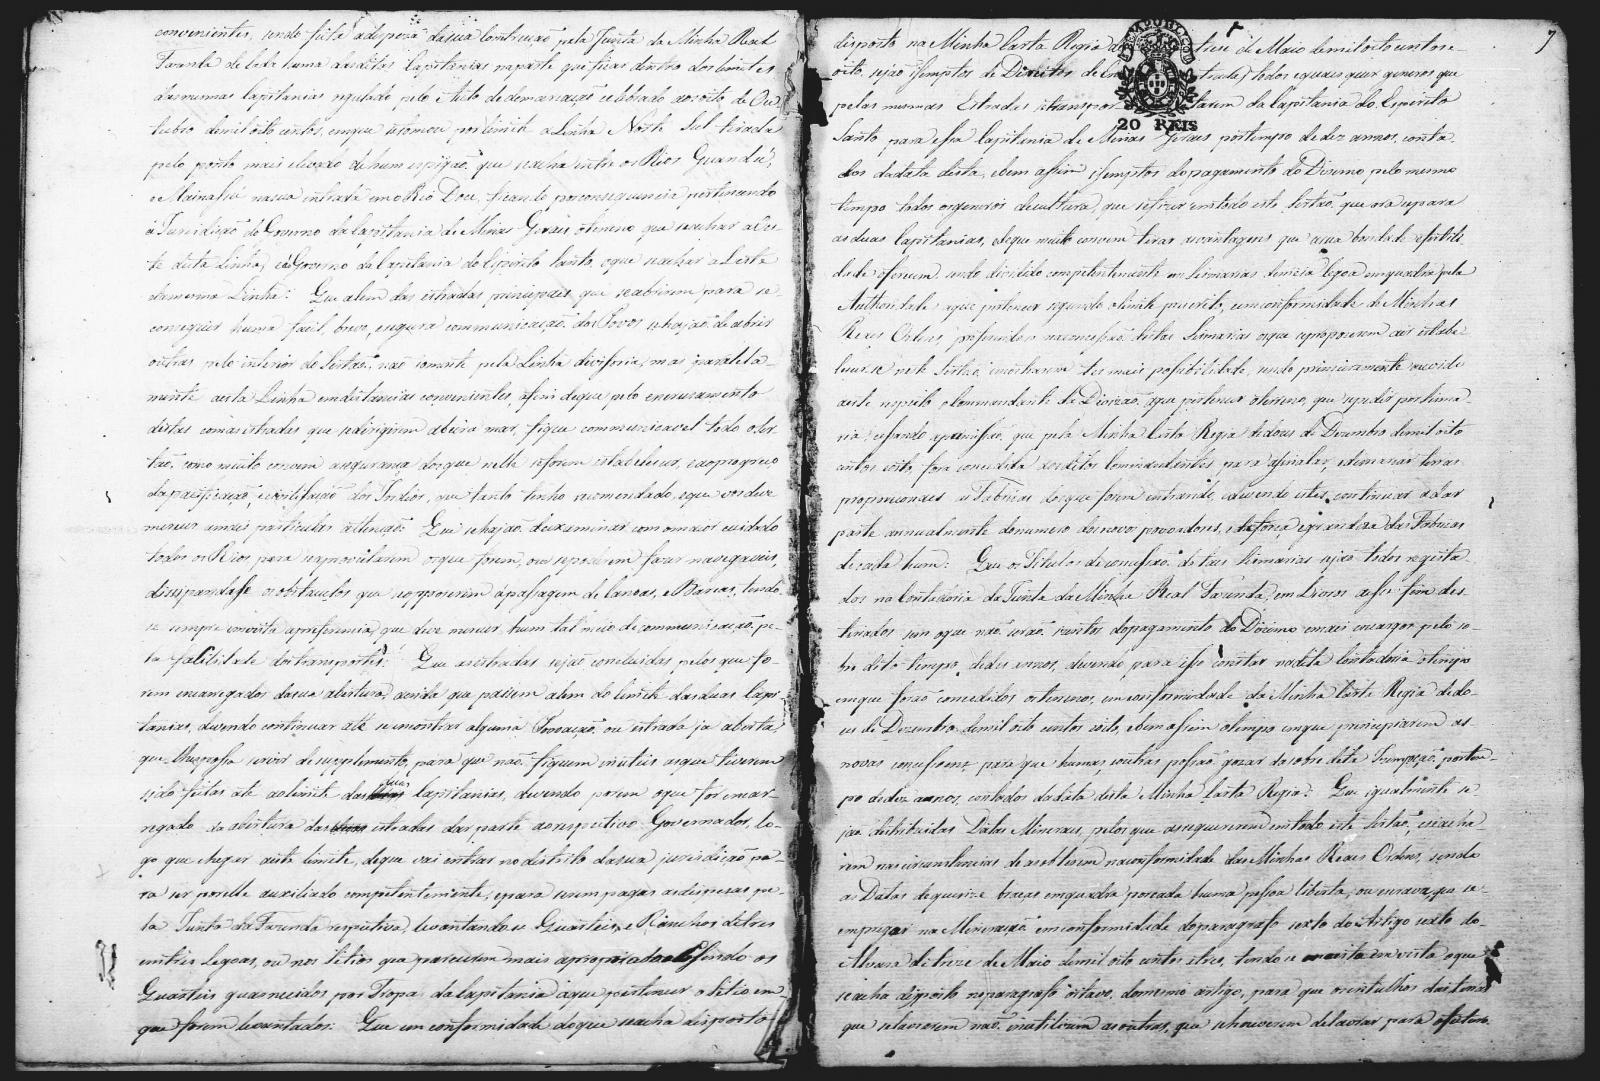 convenientes, sendo feita a despeza da sua construcaõ pela Junta da Minha Real
Fazenda de cada huma das ditas Capitanias na parte que ficar dentro dos limites
das mesmas Capitanias regulado pelo Auto de demarcaçaõ celebrado ao oito de Ou-
tubro de mil oito centos, em que se tomou por limite a Linha Norte Sul tirada
pelo ponto mais elevado de hum espigaõ, que se acha entre os Rios Guandú,
e Mainassú na sua entrada em o Rio Doce, ficando por consequencia pertencendo
á Jurisdiçaõ do Governo da Capitania de Minas Geraes o terreno que se achar a Oes-
te desta Linha, e ao Governo da Capitania do Espirito Santo, o que se achar a Leste
da mesma Linha: Que alem das estradas principaes que se abrirem para se
conseguir huma facil, breve, e segura communicaçaõ dos Povos se hajaõ de abrir
outras pelo interior do Sertaõ, naõ somente pela Linha divisoria, mas paralela-
mente a esta Linha em distancias convenientes, afim de que pelo encruzamento
destas com as estradas que se dirigirem a beira mar, fique communicavel todo o Ser-
taõ, como muito convem a segurança dos que nelle se forem estabelecer, e ao progresso
da pacificaçaõ, e civilisaçaõ dos Indios, que tanto tenho recomendado, e que vos deve
merecer a mais particular attençaõ. Que se hajaõ de examinar com o maior cuidado
todos os Rios, para se aproveitarem os que forem, ou se poderem fazer navegaveis,
dissipandose os obstaculos que se opposerem á passagem de Canoas, e Barcas, tendo-
se sempre em vista a preferencia, que deve merecer hum tal meio de communicaçaõ, pe-
la facilidade dos transportes: Que as estradas sejaõ concluidas pelos que fo-
rem encarregados da sua abertura, ainda que passem alem do limite das duas Capi-
tanias, devendo continuar até se encontrar alguma Povoaçaõ, ou estrada ja aberta,
que lhes possa servir de supplemento, para que naõ fiquem inuteis as que tiverem
sido feitas até ao limite das duas Capitanias, devendo porem o que for encar-
regado da abertura das estradas dar parte ao respectivo Governador, lo-
go que chegar a este limite, de que vai entrar no districto da sua jurisdiçaõ pa-
ra ser por elle auxiliado competentemente, e para serem pagas as despezas pe-
la Junta da Fazenda respectiva, levantando se Quarteis, e Ranchos de tres
em tres Legoas, ou nos sitios que parecerem mais apropriados, sendo os
Quarteis guarnecidos por Tropa da Capitania a que pertencer o Sitio em
que forem levantados: Que em conformidade do que se acha disposto
7
disposto na Minha Carta Regia de treze de Maio de mil oito centos e
oito, sejaõ isemptos de Direitos de todos e quaes quer generos que
pelas mesmas Estradas se da Capitania do Espirito
20 REIS
Santo para essa Capitania de Minas Geraes por tempo de dez annos, conta-
dos da data desta, e bem assim isemptos do pagamento do Dizimo pelo mesmo
tempo todos os generos de cultura, que se fizer em todo este Sertaõ, que ora separa
as duas Capitanias, e de que muito convem tirar as vantagens que a sua bondade e fertili-
dade oferecem, sendo dividido competentemente em Sesmarias de meia legoa em quadra pela
Authoridade a que pertencer segundo o limite prescrito, e em conformidade de Minhas
Reaes Ordens, preferindo se na concessaõ destas Sesmarias os que se propozerem a ir estabe-
lecer se neste Sertaõ, e mostrarem ter mais possibilidade, sendo primeiramente ouvido
a este respeito o Commandante da Divizaõ, a que pertencer o terreno, que se pedir por Sesma-
ria, cessando a permissaõ, que pela Minha Carta Regia de dous de Dezembro de mil oito
centos e oito, fora concedida aos ditos Commandantes para assinalar, e demarcar terras
proporcionaes as Fabricas dos que forem entrando, e devendo estes continuar a dar
parte annualmente do numero dos novos povoadores, e da força, e grandeza das Fabricas
de cada hum: Que os Titulos de concessaõ de taes Sesmarias sejaõ todos regista-
dos na Contadoria da Junta da Minha Real Fazenda, em Livros a esse fim des-
tinados sem o que naõ seraõ isentos do pagamento do Dizimo e mais encargos pelo so-
bre dito tempo de dez annos, devendo para isso constar na dita Contadoria o tempo
em que foraõ concedidos os terrenos, em conformidade da Minha Carta Regia de do-
us de Dezembro de mil oito centos e oito, e bem assim o tempo em que principiarem as
novas concessoens, para que humas, e outras possaõ gozar da sobre dita Izempçaõ, por tem-
po de dez annos, contados da data desta Minha Carta Regia: Que igualmente se-
jaõ destribuidas Datas Mineraes, pelos que as requererem em todo este Sertaõ, e se acha-
rem nas circunstancias de as obterem na conformidade das Minhas Reaes Ordens, sendo
as Datas de quinze braças em quadra por cada huma pessoa liberta, ou escrava, que se
empregar na Mineraçaõ em conformidade do paragrafo sexto do Artigo sexto do
Alvará de treze de Maio de mil oito centos e tres, tendo se em vista o que
se acha disposto no paragrafo oitavo, do mesmo artigo, para que os entulhos das terras
que se lavrarem naõ inutilizem as outras, que se houverem de lavrar para o futuro